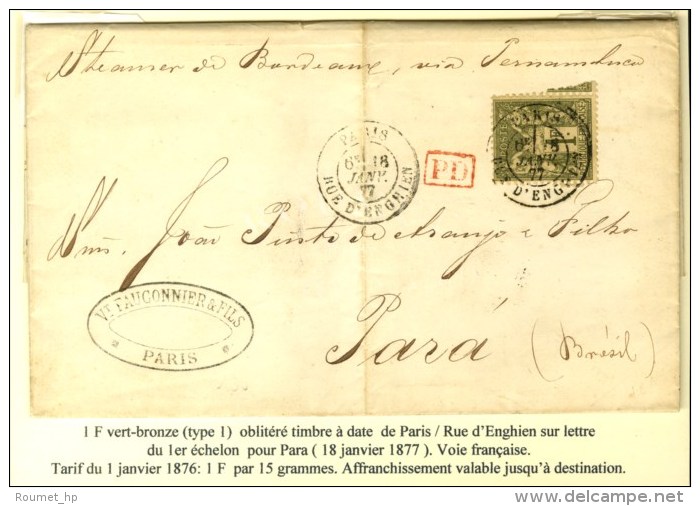 Steamer de Bordeaux, via Pernambuco
PARIS
6E 18
JANV.
77
RUE D'ENGHIEN
PD
PARIS
6E 18
JANV.
77
RUE D'ENGHIEN
João Pinto de Araujo e Filho
Vᵉ FAUCONNIER & FILS
PARIS
Pará
(Brésil)
1 F vert-bronze (type 1) oblitéré timbre à date de Paris / Rue d'Enghien sur lettre
du 1er échelon pour Para ( 18 janvier 1877 ). Voie française.
Tarif du 1 janvier 1876: 1 F par 15 grammes. Affranchissement valable jusqu'à destination.
Roumet_hp
delcampe.net